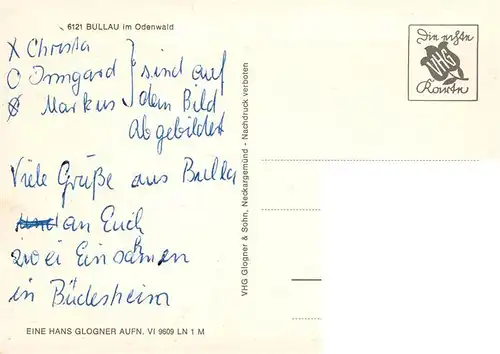 6121 BULLAU im Odenwald
X Christa
O Irmgard } sind auf
Markus dem Bild
Abgebildet
Viele Grüße aus Bulla
und an Euch
zwei Einsamen
in Büdesheim
EINE HANS GLOGNER AUFN. VI 9609 LN 1 M
VHG Glogner & Sohn, Neckargemünd - Nachdruck verboten
Die echte
VHG
Karte